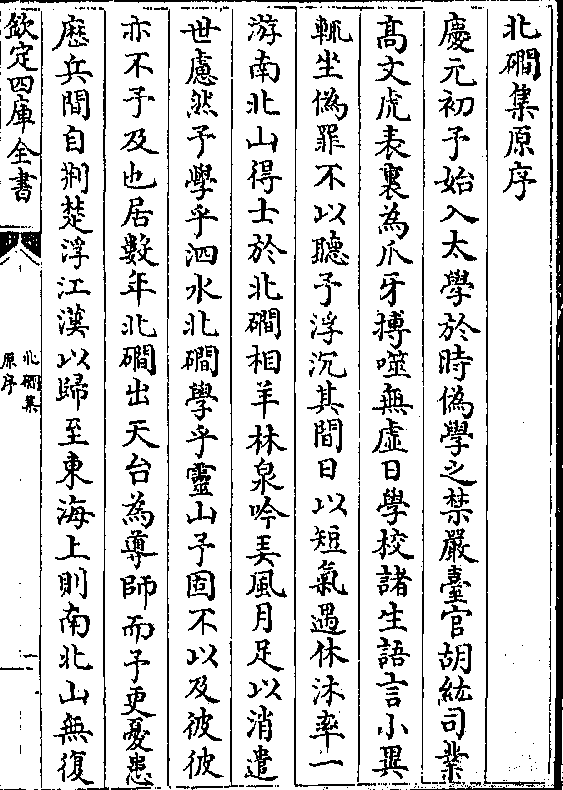 北磵集原序
慶元初予始入太學於時偽學之禁嚴臺官胡紘司業
高文虎表裏為爪牙搏噬無虛日學校諸生語言小異
輒坐偽罪不以聽予浮沉其間日以短氣遇休沐率一
游南北山得士於北磵相羊林泉吟弄風月足以消遣
世慮然予學乎泗水北磵學乎靈山予固不以及彼彼
亦不予及也居數年北磵出天台為尊師而予更憂患
歴兵間自荆楚浮江漢以歸至東海上則南北山無復
欽定四庫全書
北磵集
原序
一